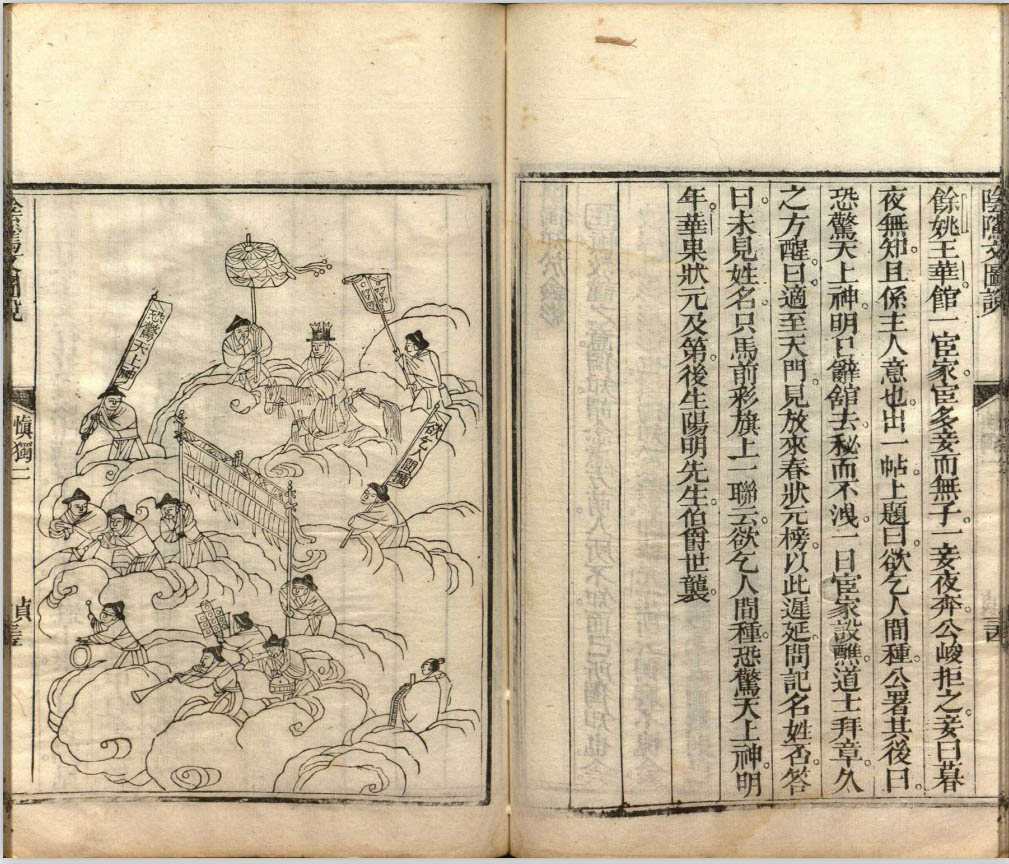 陰隲文圖說
餘姚王華館一宦家宦多妾而無子一妾夜奔公峻拒之妾曰暮
夜無知且係主人意也出一帖上題曰欲乞人間種公署其後曰
恐驚天上神明日辭館去秘而不洩一日宦家設醮道士拜章久
之方醒曰適至天門見放來春狀元榜以此遲延問記名姓否答
曰未見姓名只馬前彩旗上一聯云欲乞人間種恐驚天上神明
年華果狀元及第後生陽明先生伯爵世襲
欲乞人間種
恐驚天上神
慎獨二
貞